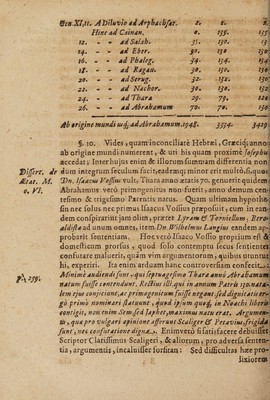 Gen XI,11. A Diluvio ad Arphachsar. 2. 2. 2.
Hinc ad Cainan. 0. 135.
12. -- -- ad Salah. 35. 130. 135
14. -- -- ad Eber. 30. 130 130
16. -- -- ad Phaleg. 34. 134. 134
18. -- -- ad Ragau. 30. 130. 130
20. -- -- ad Serug. 32. 132. 130
22. -- -- ad Nachor. 30. 130. 130
24. -- -- ad Thara 29. 79. 120
26. -- -- ad Abrahamum 70. 70. 130
Ab origine mundi usq; ad Abrahamum. 1948. 3334. 3429
§. 10. Vides, quam inconciliatè Hebræi, Græciq; annos
ab origine mundi numerent, & uti his quam proximè Josephus
accedat; Inter hujus enim & illorum summam differentia non-
dum integrum seculum facit, eademq; minor erit multò, si, quod
Dn. Isaacus Vossius vult, Thara anno ætatis 70. genuerit quidem
Abrahamus verò primogenitus non fuerit, anno demum cen-
tesimo & trigesimo Paternis natus. Quam ultimam hypothe-
sin nec solus nec primus Isaacus Vossius præposuit, cum in ean-
dem conspirarint jam olim, præter Lyram & Torniellum, Bero-
aldista ad unum omnes, item Dn. Wilhelmus Langius eandem ap-
probarit sententiam. Hoc verò Isaaco Vossio proprium est &
domesticum prorsus, quod solo contemptu secus sentientes
confutare maluerit, quàm vim argumentorum, quibus utuntur
hi, experiri. Ita enim arduam hanc controversiam confecit.
Minimè audiendi sunt, qui septuagesimo Thara anno Abrahamum
natum fuisse contendunt. Rectius illi, qui in annum Patris 130. nata-
lem ejus conjiciunt, ac primogenitum fuisse negant: sed dignitatis er-
gò primò nominari statuunt, quod ipsum quoq, in Noachi liberis
contigit, non enim Sem, sed Japhet, maximus natu erat. Argumen-
ta, qua pro vulgari opinione afferunt Scaliger & Petavius, frigida
sunt, nec confutatione digna. Enimverò si satisfacere debuisset
Scriptor Clarissimus Scaligeri, & aliorum, pro adversa senten-
tia, argumentis, incaluisset forsitan: Sed difficultas hæc pro-
lixiorem
Dissert. de
Ætat. M.
c. VI.
p. 259.